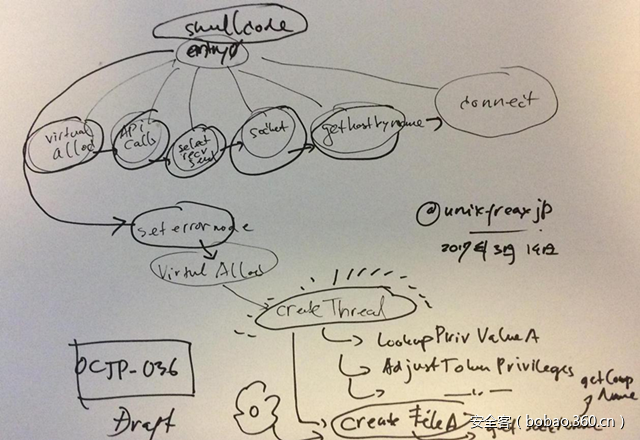 shellcode
entry0
virtual
Alloc
API
calls
select
recv
send
socket
gethostbyname
connect
set error mode
Virtual Alloc
@unixfreaxjp
2017年3月14日
createThread
LookupPrivValueA
AdjustTokenPrivileges
OCJP-036
getComp
Name
Draft
Create FileA
安全客（bobao.360.cn）